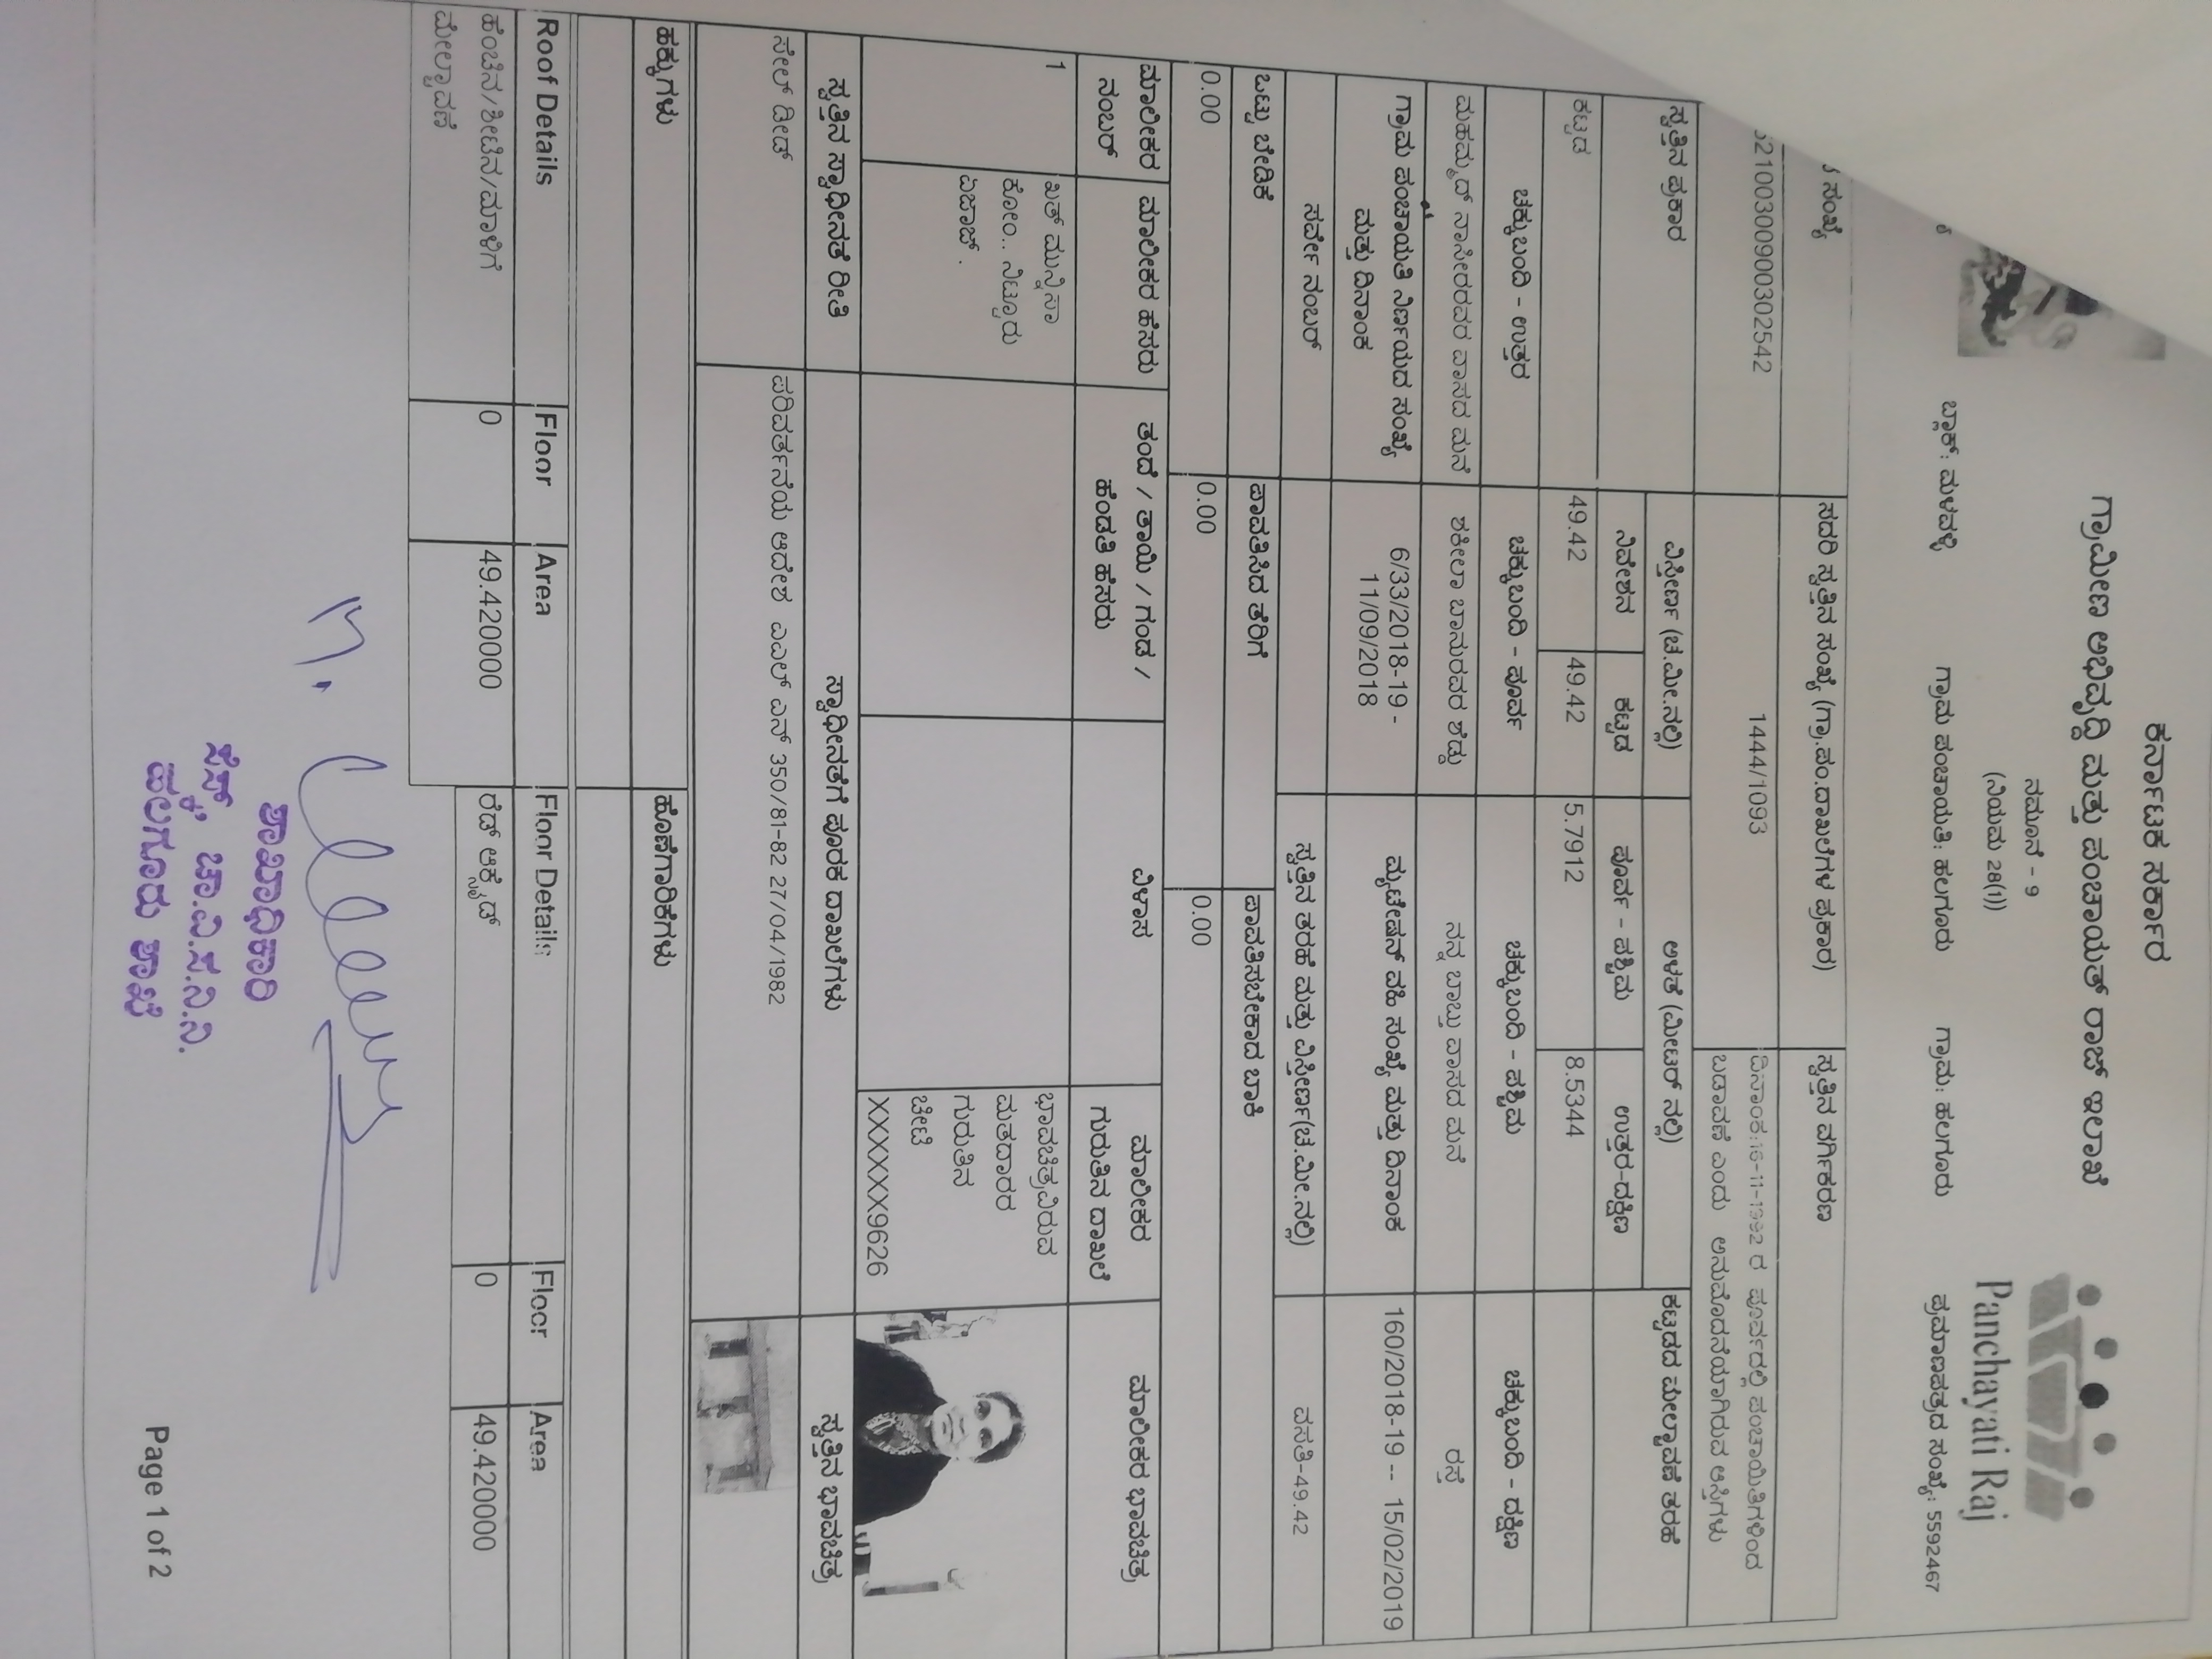 ಕರ್ನಾಟಕ ಸರ್ಕಾರ
ಗ್ರಾಮೀಣ ಅಭಿವೃದ್ಧಿ ಮತ್ತು ಪಂಚಾಯತ್ ರಾಜ್ ಇಲಾಖೆ
ನಮೂನೆ - 9
(ನಿಯಮ 28(1))
Panchayati Raj
ಬ್ಲಾಕ್: ಮಳವಳ್ಳಿ ಗ್ರಾಮ ಪಂಚಾಯತಿ: ಹಲಗೂರು ಗ್ರಾಮ: ಹಲಗೂರು ಪ್ರಮಾಣಪತ್ರದ ಸಂಖ್ಯೆ: 5592467
ಸಂಖ್ಯೆ ಸದರಿ ಸ್ವತ್ತಿನ ಸಂಖ್ಯೆ (ಗ್ರಾ.ಪಂ.ದಾಖಲೆಗಳ ಪ್ರಕಾರ) ಸ್ವತ್ತಿನ ವರ್ಗೀಕರಣ
2100300900302542 1444/1093 ದಿನಾಂಕ:16-11-1992 ರ ಪೂರ್ವದಲ್ಲಿ ಪಂಚಾಯಿತಿಗಳಿಂದ
ಬಡಾವಣೆ ಎಂದು ಅನುಮೋದನೆಯಾಗಿರುವ ಆಸ್ತಿಗಳು
ಸ್ವತ್ತಿನ ಪ್ರಕಾರ ವಿಸ್ತೀರ್ಣ (ಚ.ಮೀ.ನಲ್ಲಿ) ಅಳತೆ (ಮೀಟರ್ ನಲ್ಲಿ) ಕಟ್ಟಡದ ಮೇಲ್ಛಾವಣಿ ತರಹೆ
ನಿವೇಶನ ಕಟ್ಟಡ ಪೂರ್ವ - ಪಶ್ಚಿಮ ಉತ್ತರ-ದಕ್ಷಿಣ
ಕಟ್ಟಡ 49.42 49.42 5.7912 8.5344
ಚಕ್ಕುಬಂದಿ - ಉತ್ತರ ಚಕ್ಕುಬಂದಿ - ಪೂರ್ವ ಚಕ್ಕುಬಂದಿ - ಪಶ್ಚಿಮ ಚಕ್ಕುಬಂದಿ - ದಕ್ಷಿಣ
ಮಹಮ್ಮದ್ ನಾಸೀರರವರ ವಾಸದ ಮನೆ ಶಕೀಲಾ ಬಾನುರವರ ಶೆಡ್ಡು ನನ್ನ ಬಾಬ್ತು ವಾಸದ ಮನೆ ರಸ್ತೆ
ಗ್ರಾಮ ಪಂಚಾಯತಿ ನಿರ್ಣಯದ ಸಂಖ್ಯೆ 6/33/2018-19 - ಮ್ಯುಟೇಷನ್ ವಹಿ ಸಂಖ್ಯೆ ಮತ್ತು ದಿನಾಂಕ 160/2018-19 -- 15/02/2019
ಮತ್ತು ದಿನಾಂಕ 11/09/2018
ಸರ್ವೇ ನಂಬರ್ ಸ್ವತ್ತಿನ ತರಹೆ ಮತ್ತು ವಿಸ್ತೀರ್ಣ(ಚ.ಮೀ.ನಲ್ಲಿ) ವಸತಿ-49.42
ಒಟ್ಟು ಬೇಡಿಕೆ ಪಾವತಿಸಿದ ತೆರಿಗೆ ಪಾವತಿಸಬೇಕಾದ ಬಾಕಿ
0.00 0.00 0.00
ಮಾಲೀಕರ ಮಾಲೀಕರ ಹೆಸರು ತಂದೆ / ತಾಯಿ / ಗಂಡ / ವಿಳಾಸ ಮಾಲೀಕರ ಮಾಲೀಕರ ಭಾವಚಿತ್ರ
ನಂಬರ್ ಹೆಂಡತಿ ಹೆಸರು ಗುರುತಿನ ದಾಖಲೆ
1 ಖತ್ ಮುನ್ನಿಸಾ ಭಾವಚಿತ್ರವಿರುವ
ಕೋಂ.. ನಿಟ್ಟೂರು ಮತದಾರರ
ಏಜಾಜ್ . ಗುರುತಿನ
ಚೀಟಿ
XXXXXX9626
ಸ್ವತ್ತಿನ ಸ್ವಾಧೀನತೆ ರೀತಿ ಸ್ವಾಧೀನತೆಗೆ ಪೂರಕ ದಾಖಲೆಗಳು ಸ್ವತ್ತಿನ ಭಾವಚಿತ್ರ
ಸೇಲ್ ಡೀಡ್ ಪರಿವರ್ತನೆಯ ಆದೇಶ ಎಎಲ್ ಎನ್ 350/81-82 27/04/1982
ಹಕ್ಕುಗಳು ಹೊಣೆಗಾರಿಕೆಗಳು
Roof Details Floor Area Floor Details Floor Area
ಹೆಂಚಿನ/ಶೀಟಿನ/ಮಾಳಿಗೆ 0 49.420000 ರೆಡ್ ಆಕ್ಸೈಡ್ 0 49.420000
ಮೇಲ್ಛಾವಣಿ
ಶಾಖಾಧಿಕಾರಿ
ಸೆಸ್ಕ್ ಚಾ.ವಿ.ಸ.ನಿ.ನಿ.
ಹಲಗೂರು ಶಾಖೆ
Page 1 of 2